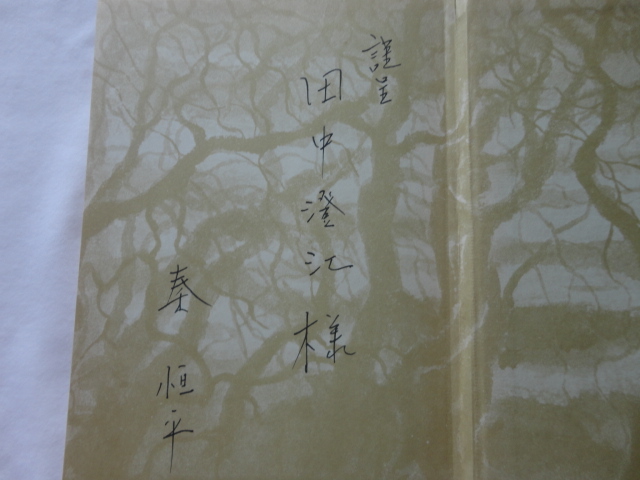 謹呈
田中澄江様
秦恒平